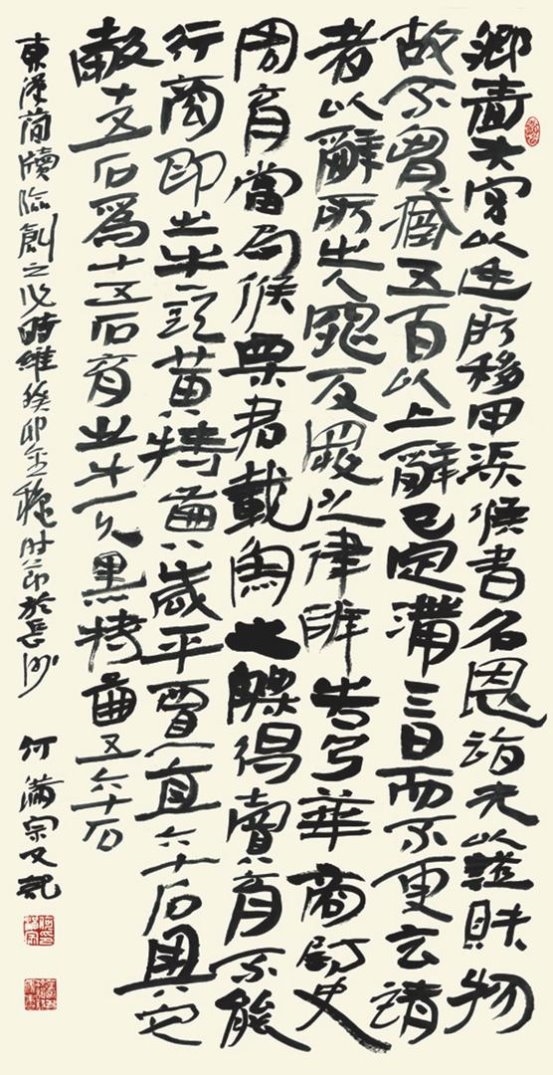 鄉嗇夫宮以廷所移甲渠候書召恩詣先以證財物
故不實臧五百以上辭已定滿三日而不更言請
者以辭所出入罪反罪之律辨告乃華商尉史
周育當為候粟君載魚之觻得賣育不能
行商即出牛一頭黃特齒八歲平賈直六十石與它
穀十五石為十五石育出牛一頭黑特齒五六十石
東漢簡牘臨創之以時維癸卯金穐時節於長沙 何滿宗又記